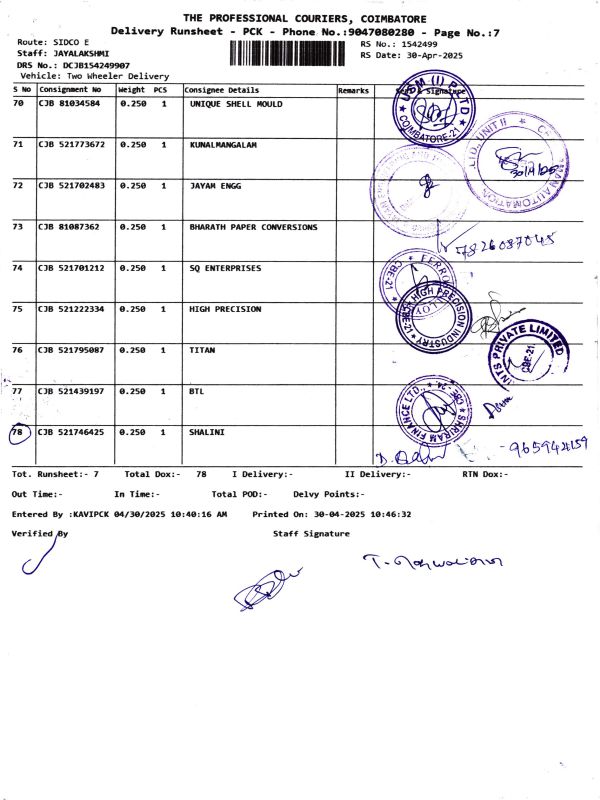 THE PROFESSIONAL COURIERS, COIMBATORE
Delivery Runsheet - PCK - Phone No.:9047080280 - Page No.:7
Route: SIDCO E
Staff: JAYALAKSHMI
DRS No.: DCJB154249907
Vehicle: Two Wheeler Delivery
RS No.: 1542499
RS Date: 30-Apr-2025
S No Consignment No Weight PCS Consignee Details Remarks Signature
70 CJB 81034584 0.250 1 UNIQUE SHELL MOULD
COIMBATORE-21
71 CJB 521773672 0.250 1 KUNALMANGALAM
LTD., UNIT II
AUTOMATION
72 CJB 521702483 0.250 1 JAYAM ENGG
73 CJB 81087362 0.250 1 BHARATH PAPER CONVERSIONS
7826087045
74 CJB 521701212 0.250 1 SQ ENTERPRISES
CBE-21
75 CJB 521222334 0.250 1 HIGH PRECISION
HIGH PRECISION INDUSTRY
CBE-21
76 CJB 521795087 0.250 1 TITAN
PRIVATE LIMITED
CBE-21
77 CJB 521439197 0.250 1 BTL
SHRIRAM FINANCE LTD.,
78 CJB 521746425 0.250 1 SHALINI
Tot. Runsheet:- 7 Total Dox:- 78 I Delivery:- II Delivery:- RTN Dox:-
Out Time:- In Time:- Total POD:- Delvy Points:-
Entered By :KAVIPCK 04/30/2025 10:40:16 AM Printed On: 30-04-2025 10:46:32
Verified By Staff Signature